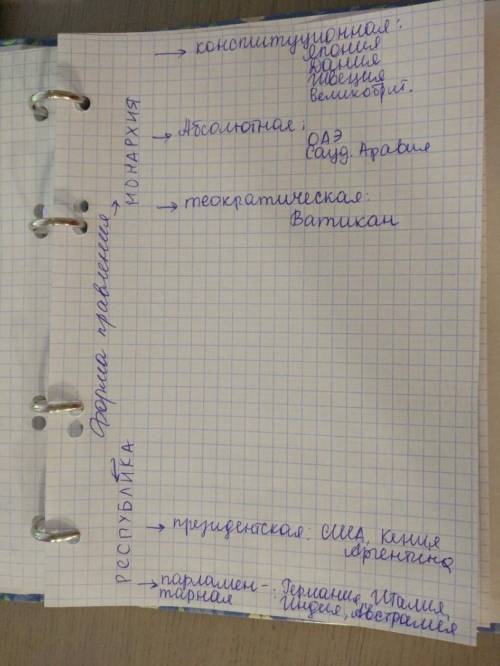 Форма правления
МОНАРХИЯ
→ конституционная:
Япония
Дания
Швеция
Великобрит.
→ Абсолютная:
ОАЭ
Сауд. Аравия
→ теократическая:
Ватикан
РЕСПУБЛИКА
→ президентская: США, Кения
Аргентина
→ парламен- : Германия, Италия,
тарная Индия, Австралия